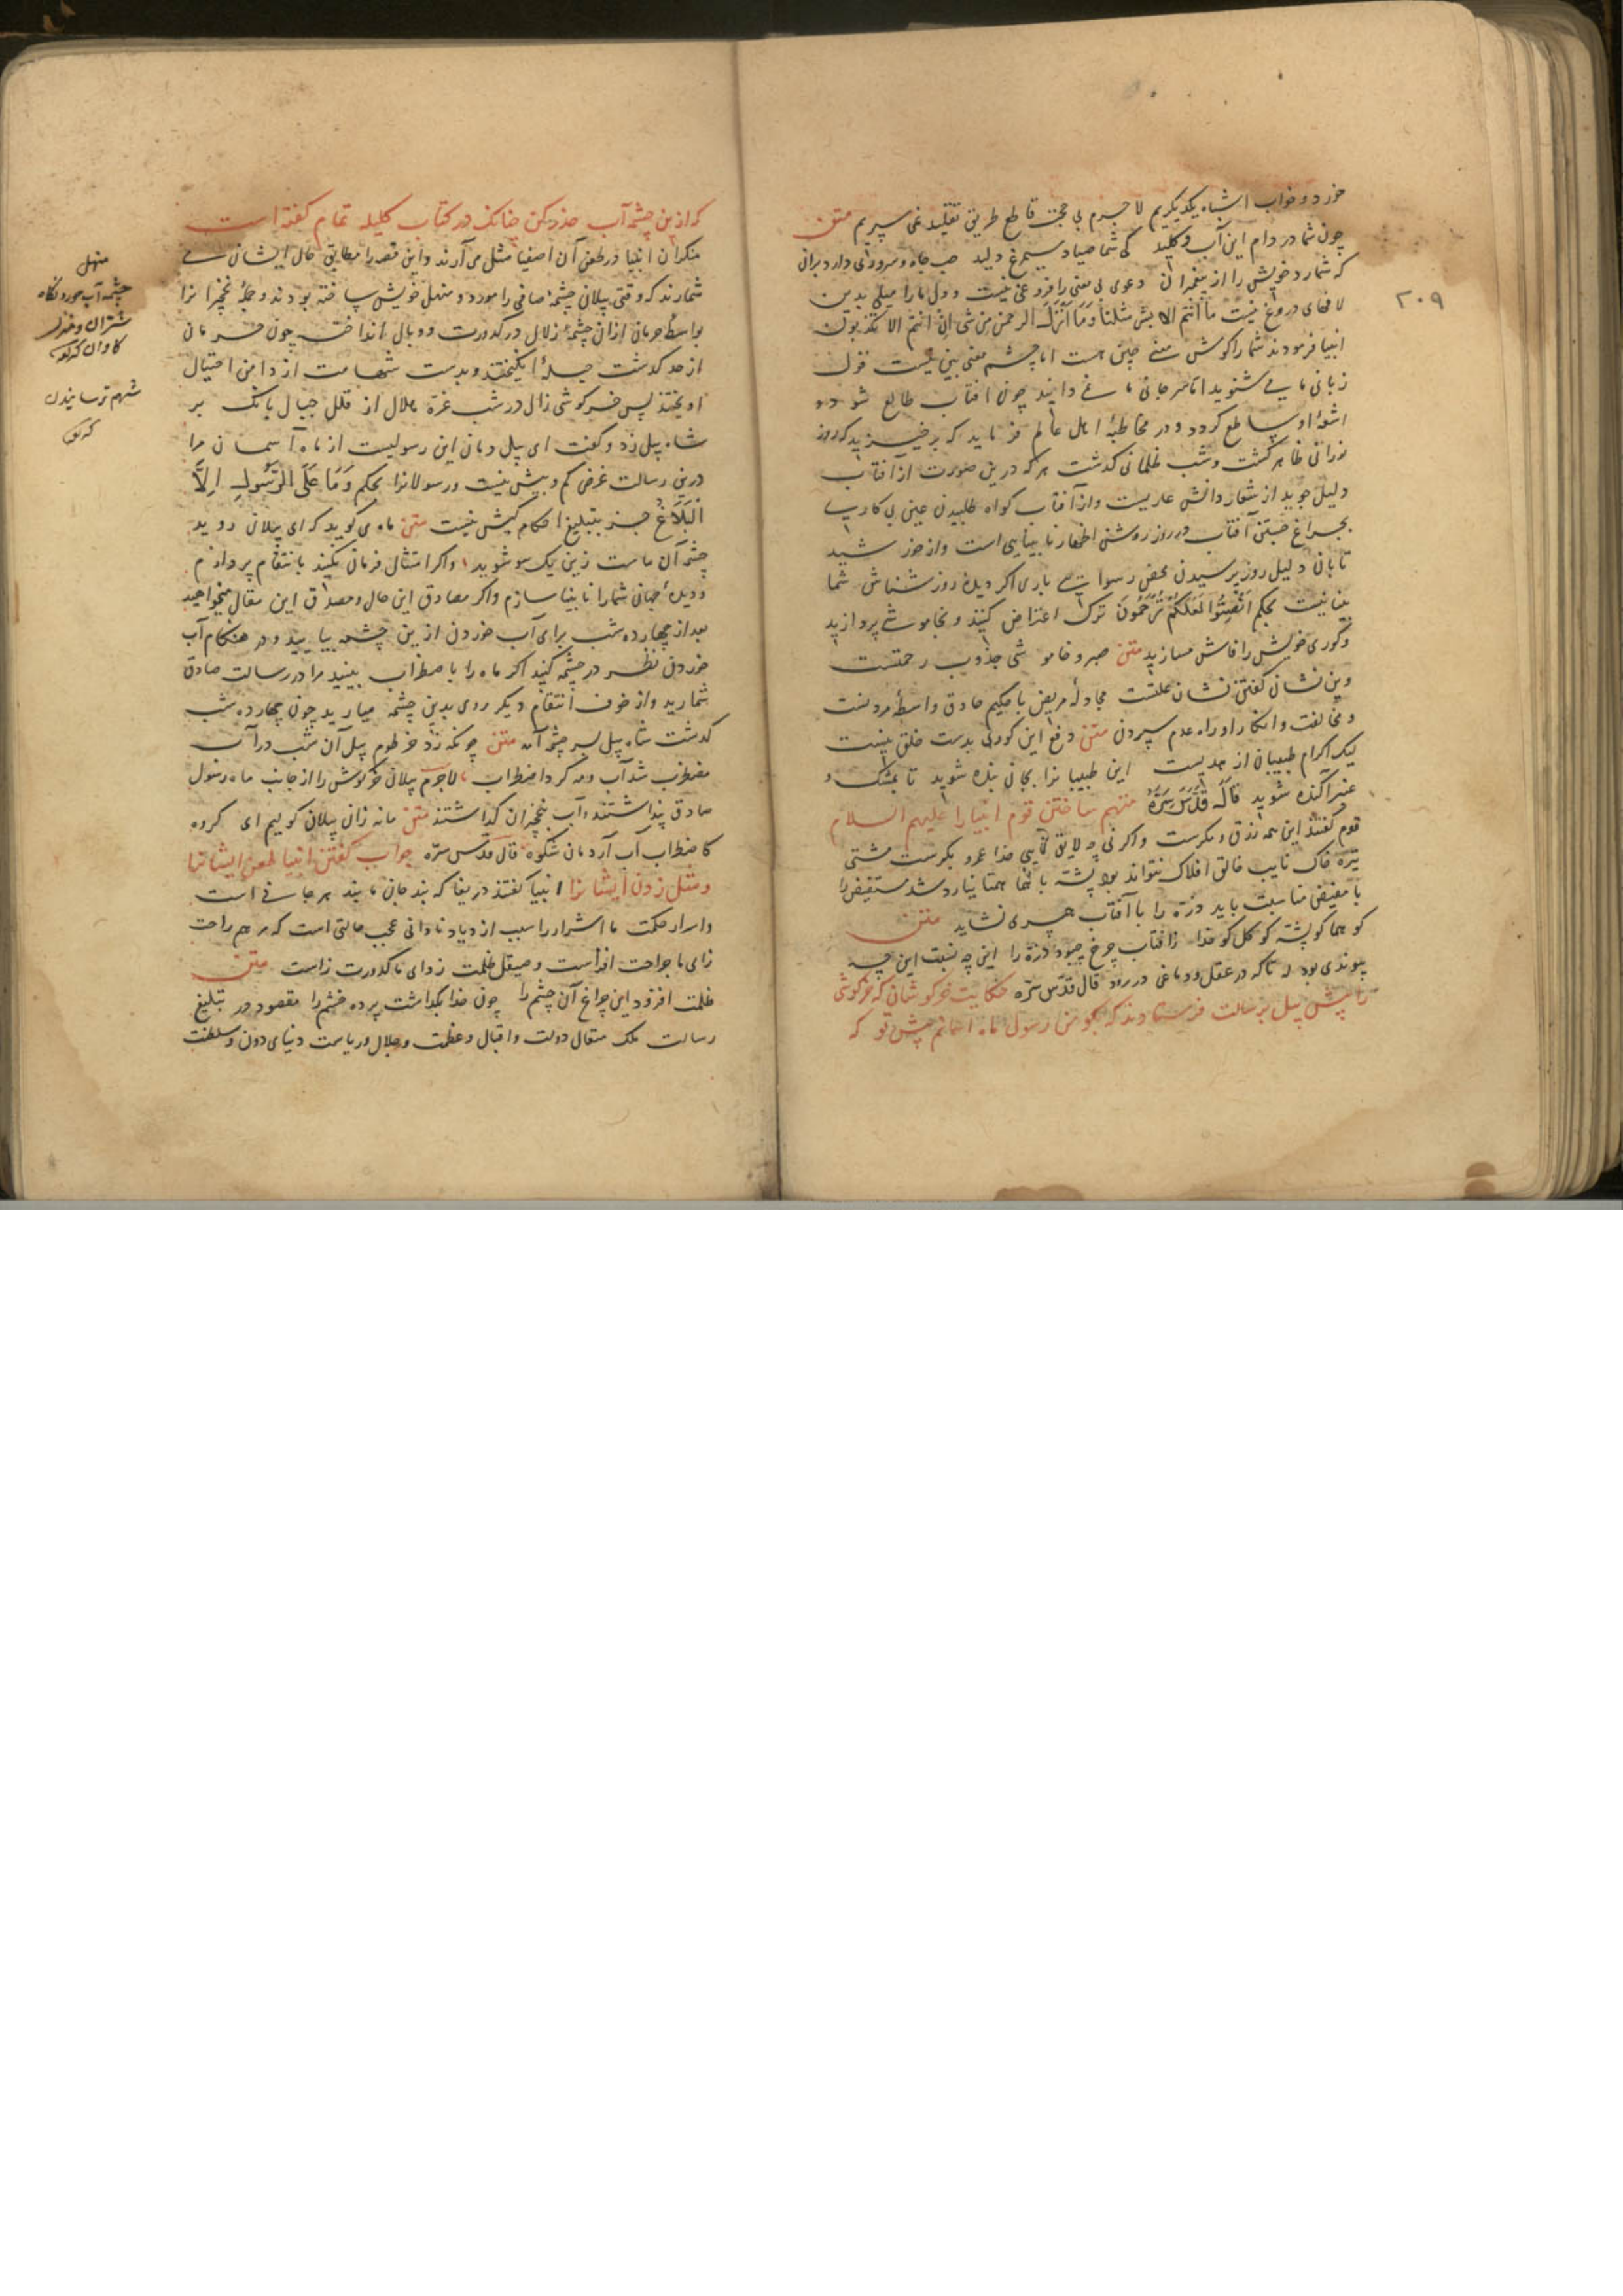 ۲۰۹
خورد و خواب اشباه یکدیگریم لا جرم بی حجت قاطع طریق تقلید نمی سپریم متن
چون شما در دام این آب و گلید کی شما صیاد سیمرغ دلید حب جاه و سروری دارد بران
که شمارد خویش را از پیغمبران دعوی بی معنی را فروغی نیست و دل ما را میلی بدین
لافهای دروغ نیست ما انتم الا بشر مثلنا وَمَا اَنْزَلَ الرحمن من شئ ان انتم الا تکذبون
انبیا فرمودند شما را گوش سخن چین هست اما چشم معنی بین نیست قول
زبانی ما می شنوید اما سر جانی ما نمی دانید چون آفتاب طالع شود و
اشعهٔ او ساطع گردد و در مخاطبهٔ اهل عالم فرماید که برخیزید که روز
نورانی ظاهر گشت و شب ظلمانی گذشت هر که درین صورت از آفتاب
دلیل جوید از شعار دانش عاریست و از آفتاب گواه طلبیدن عین بی کاریست
بچراغ جستن آفتاب در روز روشن اظهار نابینایی است و از خورشید
تابان دلیل روز پرسیدن محض رسوایی باری اگر دیدهٔ روز شناس شما
بینا نیست بحکم اَنْصِتُوا لَعَلَّكُمْ تُرْحَمُونَ ترک اعتراض کنید و بخاموشی پردازید
و کوری خویش را فاش مسازید متن صبر و خاموشی جذوب رحمتست
وین نشان گفتن نشان علتست مجادلهٔ مریض با حکیم حاذق واسطهٔ مردنست
و مخالفت و انکار او راه عدم سپردن متن دفع این کوری بدست خلق نیست
لیک اکرام طبیبان از هدیست این طبیبانرا بجان بنده شوید تا بمشک و
عنبر آکنده شوید قَالَ قُدِّسَ سِرُّهُ متهم ساختن قوم انبیا را علیهم السلام
قوم گفتند این همه زرق و مکرست و اگر نی چه لایق نایبی خدا عمرو و بکرست مشتی
تیره خاک نایب خالق افلاک نتواند بود پشه با هما همتا نیارد شد مستفیض را
با مفیض مناسبت باید ذره را با آفتاب همسری نشاید متن
کو هما کو پشه کو گل کو خدا ز آفتاب چرخ چبود ذره را این چه نسبت این چه
پیوندی بود تا که در عقل و دماغی در رود قال قدّس سرّه حکایت خرگوشان که خرگوشی
را پیش پیل برسالت فرستادند که بگو من رسول ماه آسمانم پیش تو که
که ازین چشمه آب حذر کن چنانک در کتاب کلیله تمام گفته است
منکران انبیا در طعن آن اصفیا مثل می آرند و این قصه را مطابق حال ایشان می
شمارند که وقتی پیلان چشمهٔ صافی را مورد و منهل خویش ساخته بودند و جمله نخچیرانرا
بواسطهٔ حرمان ازان چشمهٔ زلال در کدورت و وبال انداخته چون حرمان
از حد گذشت حیلهٔ انگیختند و بدست شهامت از دامن احتیال
آویختند پس خرگوشی زال در شب غرهٔ هلال از قلل جبال بانگ بر
شاه پیل زد و گفت ای پیل دمان این رسولیست از ماه آسمان مرا
درین رسالت غرض کم و بیش نیست و رسولانرا بحکم وَمَا عَلَی الرَّسُولِ اِلاَّ
الْبَلَاغُ جز بتبلیغ احکام کیش نیست متن ماه می گوید که ای پیلان روید
چشمه آن ماست زین یک سو شوید واگر امتثال فرمان نکنید بانتقام پردازم
و دیدهٔ جهانی شما را نابینا سازم و اگر مصادق این حال و مصداق این مقال میخواهید
بعد از چهارده شب برای آب خوردن ازین چشمه بیایید و در هنگام آب
خوردن نظر در چشمه کنید اگر ماه را با ضطراب بینید مرا در رسالت صادق
شمارید و از خوف انتقام دیگر روی بدین چشمه میارید چون چهارده شب
گذشت شاه پیل بسر چشمه آمد متن چونکه زد خرطوم پیل آن شب در آب
مضطرب شد آب و مه کرد اضطراب لاجرم پیلان خرگوش را از جانب ماه رسول
صادق پنداشتند و آب بنخچیران گذاشتند متن ما نه زان پیلان گولیم ای گروه
کاضطراب آب آردمان شکوه قال قدّس سرّه جواب گفتن انبیا طعن ایشانرا
و مثل زدن ایشانرا انبیا گفتند دریغا که پند جان مایند هر جانی است
و اسرار حکمت ما اشرار را سبب ازدیاد نادانی عجب حالتی است که مرهم راحت
زای ما جراحت افزاست و صیقل ظلمت زدای ما کدورت زاست متن
ظلمت افزود این چراغ آن چشم را چون خدا بگماشت پرده خشم را مقصود در تبلیغ
رسالت ملک متعال دولت و اقبال و عظمت و جلال و ریاست دنیای دون و سلطنت
منهل
چشمه آب خوردنگاه
شتران و
گاوان
شهم ترسانیدن